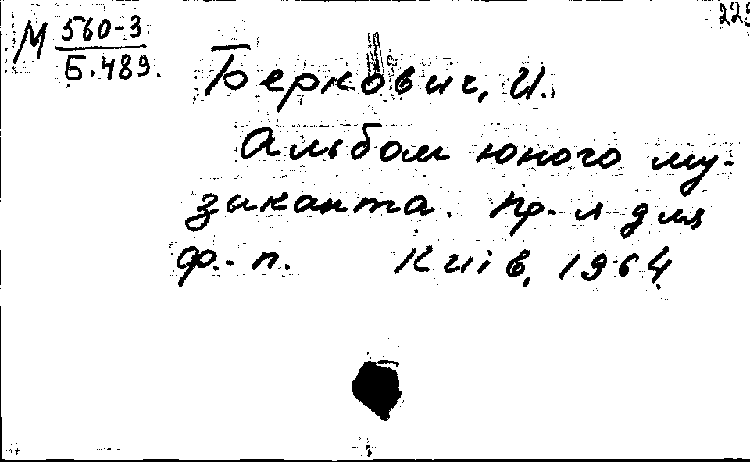 225
М 560-3
Б.489.
Беркович, И.
Альбом юного му-
зиканта. Пр-я для
ф.-п. Київ, 1964